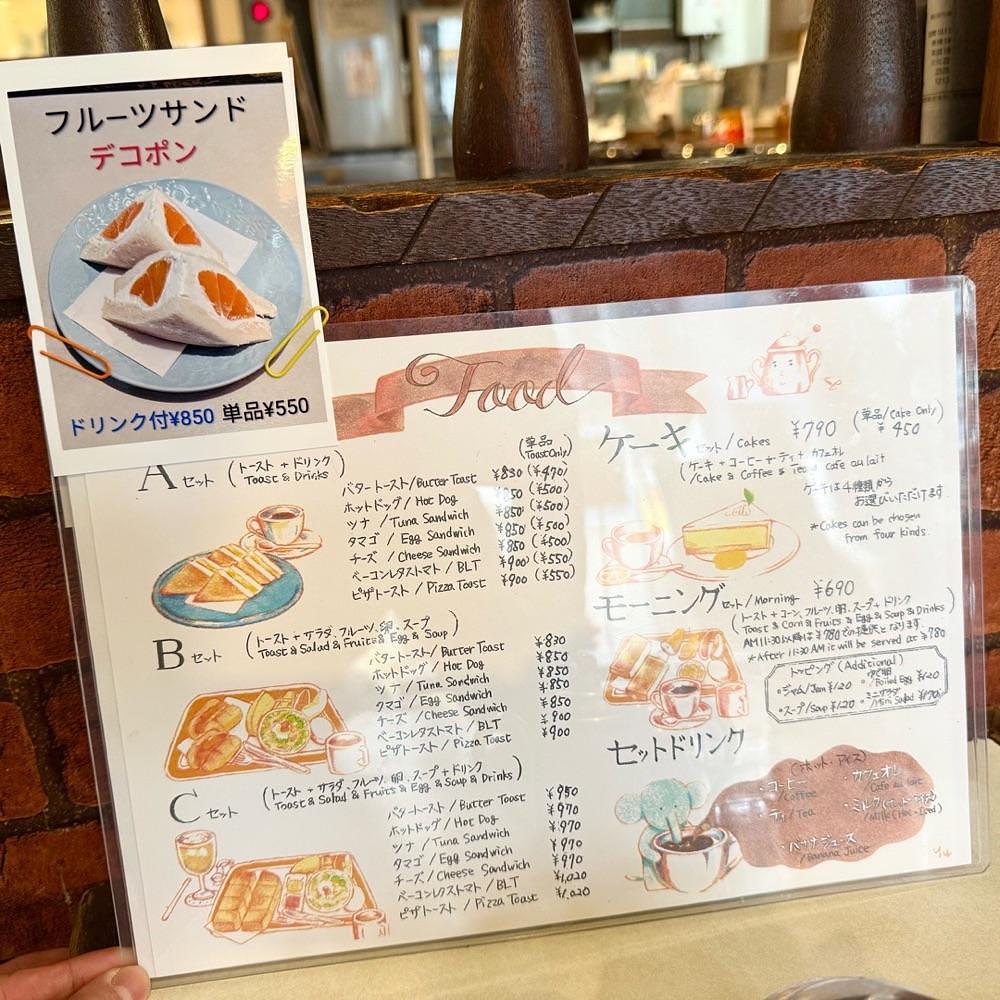 フルーツサンド
デコポン
ドリンク付¥850 単品¥550
Food
Aセット (トースト + ドリンク)
Toast & Drinks
(単品 Toast Only)
バタートースト/Butter Toast ¥830 (¥470)
ホットドッグ/Hot Dog ¥850 (¥500)
ツナ/Tuna Sandwich ¥850 (¥500)
タマゴ/Egg Sandwich ¥850 (¥500)
チーズ/Cheese Sandwich ¥850 (¥500)
ベーコンレタストマト/BLT ¥900 (¥550)
ピザトースト/Pizza Toast ¥900 (¥550)
Bセット (トースト + サラダ、フルーツ、卵、スープ)
Toast & Salad & Fruits & Egg & Soup
バタートースト/Butter Toast ¥830
ホットドッグ/Hot Dog ¥850
ツナ/Tuna Sandwich ¥850
タマゴ/Egg Sandwich ¥850
チーズ/Cheese Sandwich ¥850
ベーコンレタストマト/BLT ¥900
ピザトースト/Pizza Toast ¥900
Cセット (トースト + サラダ、フルーツ、卵、スープ + ドリンク)
Toast & Salad & Fruits & Egg & Soup & Drinks
バタートースト/Butter Toast ¥950
ホットドッグ/Hot Dog ¥970
ツナ/Tuna Sandwich ¥970
タマゴ/Egg Sandwich ¥970
チーズ/Cheese Sandwich ¥970
ベーコンレタストマト/BLT ¥1,020
ピザトースト/Pizza Toast ¥1,020
ケーキセット/Cakes ¥790 (単品/Cake Only) ¥450
(ケーキ + コーヒー + ティ + カフェオレ
/Cake & Coffee & Tea & cafe au lait
ケーキは4種類から
お選びいただけます
*Cakes can be chosen
from four kinds.
モーニングセット/Morning ¥690
(トースト + コーン、フルーツ、卵、スープ + ドリンク
Toast & Corn & Fruits & Egg & Soup & Drinks)
AM11:30以降は¥780での提供となります
*After 11:30 AM it will be served at ¥780
トッピング (Additional)
・ジャム/Jam ¥120 ・ゆで卵/Boiled Egg ¥120
・スープ/Soup ¥120 ・ミニサラダ/Mini Salad ¥170
セットドリンク
(ホット・アイス)
・コーヒー/Coffee ・カフェオレ/Cafe au lait
・ティ/Tea ・ミルク(ホット・アイス)/Milk (Hot・Iced)
・バナナジュース/Banana Juice